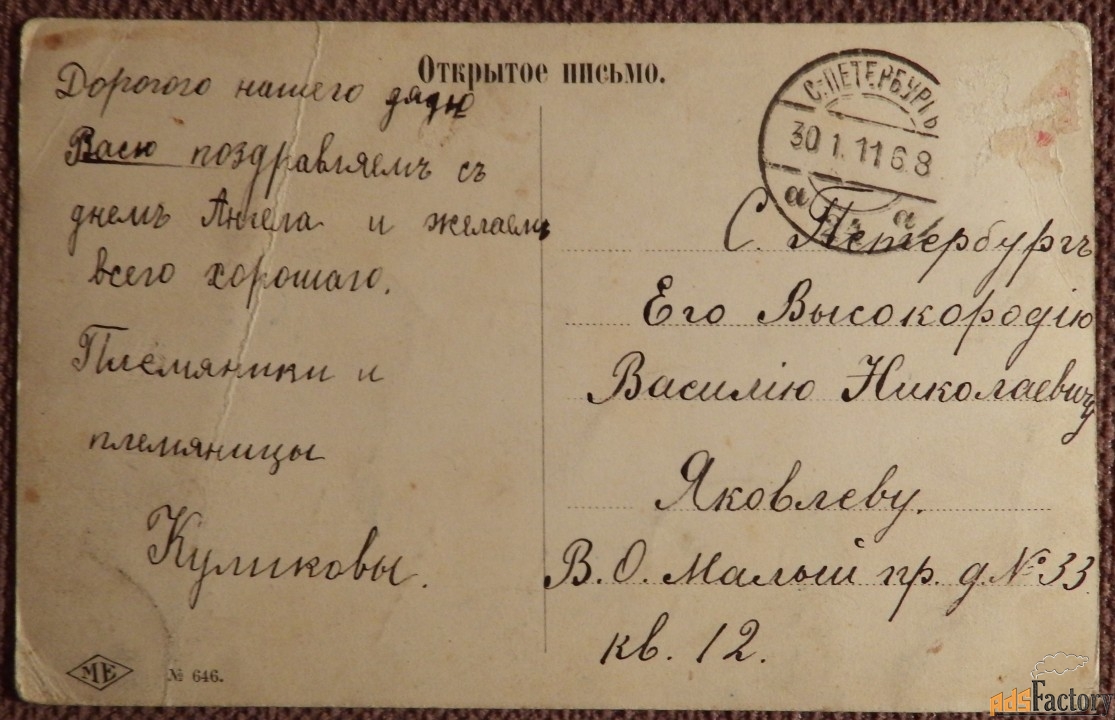 Открытое письмо.
Дорогого нашего дядю
Васю поздравляемъ съ
днемъ Ангела и желаемъ
всего хорошаго.
Племяники и
племяницы
Куликовы.
МЕ
№ 646.
С.-ПЕТЕРБУРГЪ
30 1. 11 6 8
а а
С. Петербургъ
Его Высокородію
Василію Николаевичу
Яковлеву.
В. О. Малый пр. д. № 33
кв. 12.
adsFactory